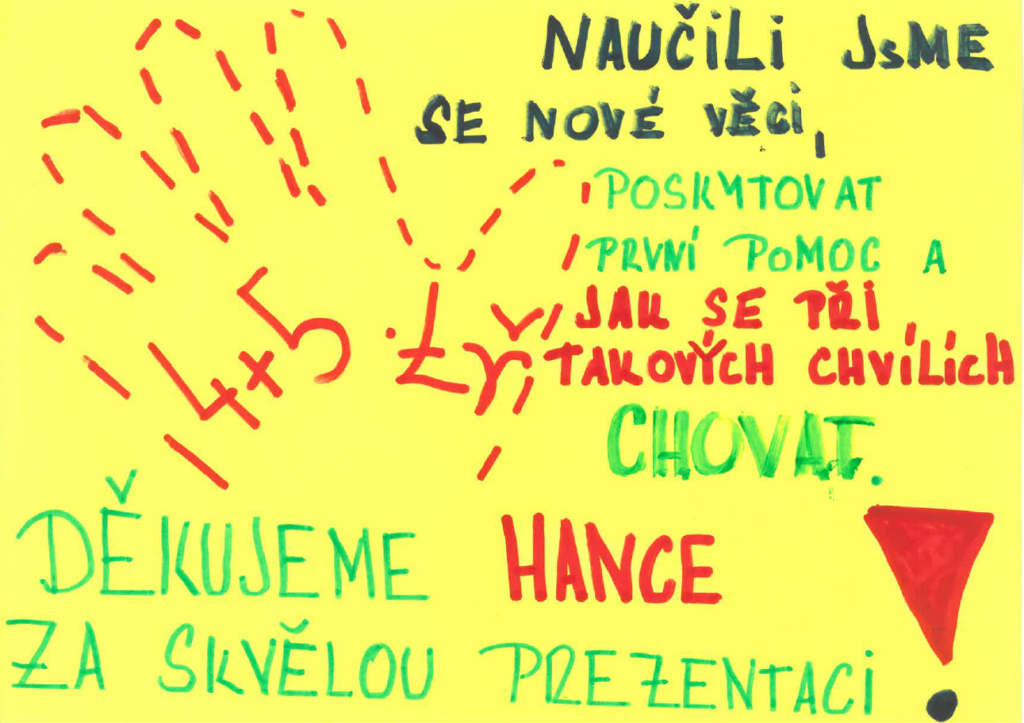 NAUČILI JSME
SE NOVÉ VĚCI,
POSKYTOVAT
PRVNÍ POMOC A
JAK SE PŘI
TAKOVÝCH CHVÍLÍCH
CHOVAT.
DĚKUJEME HANCE
ZA SKVĚLOU PREZENTACI !